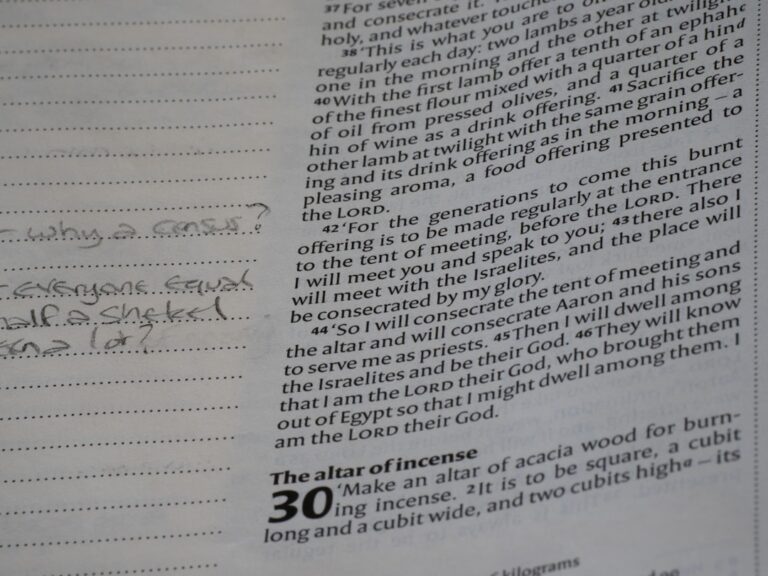 37 For seven
and consecrate it.
holy, and whatever touches
38 ‘This is what you are to
regularly each day: two lambs a year old.
one in the morning and the other at twilight.
40 With the first lamb offer a tenth of an ephah
of the finest flour mixed with a quarter of a hin
of oil from pressed olives, and a quarter of a
hin of wine as a drink offering. 41 Sacrifice the
other lamb at twilight with the same grain offer-
ing and its drink offering as in the morning – a
pleasing aroma, a food offering presented to
the LORD.
42 ‘For the generations to come this burnt
offering is to be made regularly at the entrance
to the tent of meeting, before the LORD. There
I will meet you and speak to you; 43 there also I
will meet with the Israelites, and the place will
be consecrated by my glory.
44 ‘So I will consecrate the tent of meeting and
the altar and will consecrate Aaron and his sons
to serve me as priests. 45 Then I will dwell among
the Israelites and be their God. 46 They will know
that I am the LORD their God, who brought them
out of Egypt so that I might dwell among them. I
am the LORD their God.
The altar of incense
30 ‘Make an altar of acacia wood for burn-
ing incense. 2 It is to be square, a cubit
long and a cubit wide, and two cubits high a – its
kilograms
- why a census?
- everyone equal
half a shekel
a lot?